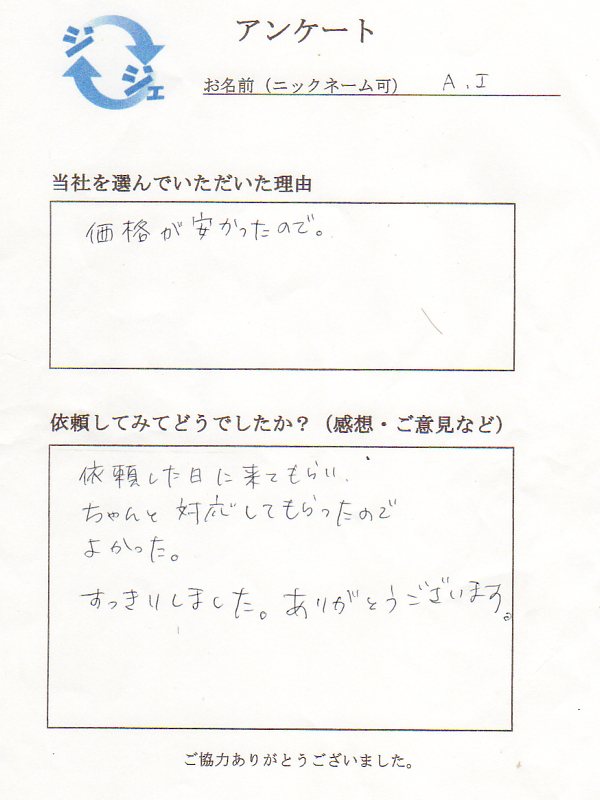 アンケート
ジジェ
お名前（ニックネーム可） A.I
当社を選んでいただいた理由
価格が安かったので。
依頼してみてどうでしたか？（感想・ご意見など）
依頼した日に来てもらい、
ちゃんと対応してもらったので
よかった。
すっきりしました。ありがとうございます。
ご協力ありがとうございました。